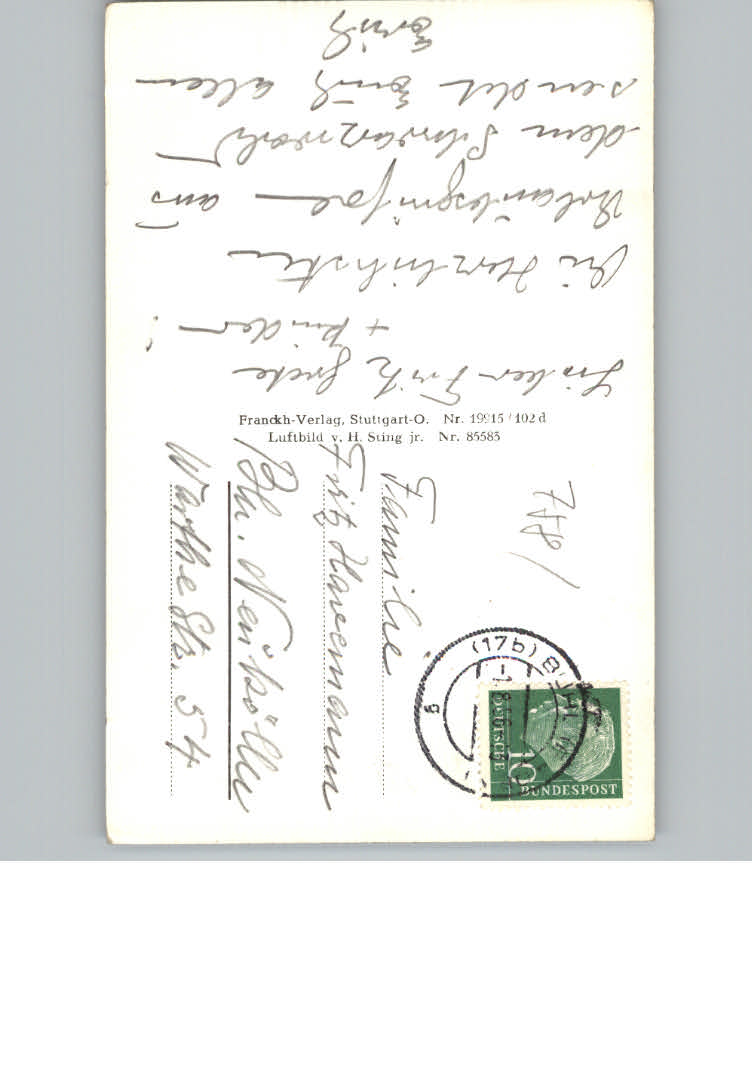 Lieber Fritz, Grete
+ Kinder!
die Herzlichsten
Urlaubsgrüße aus
dem Schwarzwald
sendet Euch allen
Erich
Franckh-Verlag, Stuttgart-O. Nr. 19915/102d
Luftbild v. H. Sting jr. Nr. 85585
758/
Familie
Fritz Havemann
Bln. Neukölln
Warthe Str. 54
(17b) BÜHL
DEUTSCHE
BUNDESPOST
10